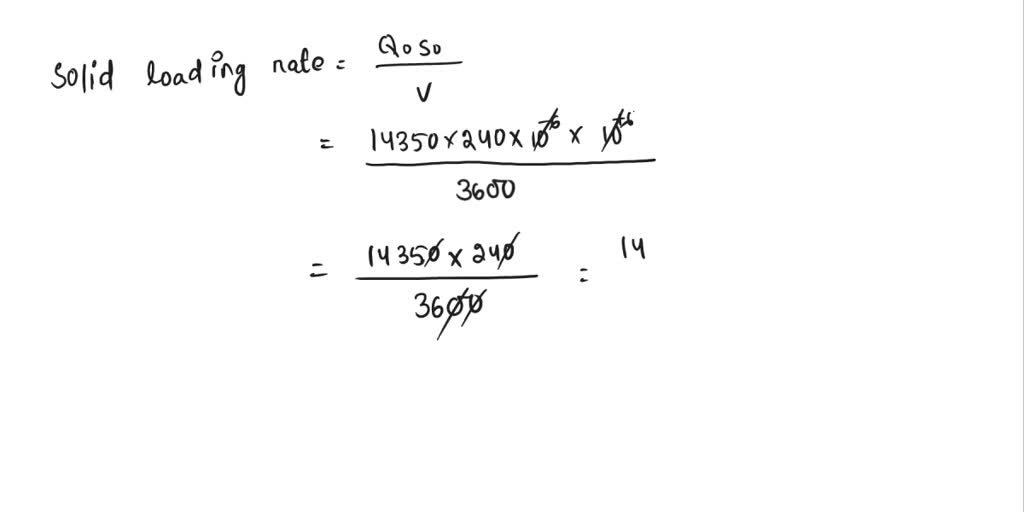 Solid loading rate = Q0S0 / V
= 14350 × 240 × 10^-6 × 10^+6 / 3600
= 14350 × 240 / 3600 = 14